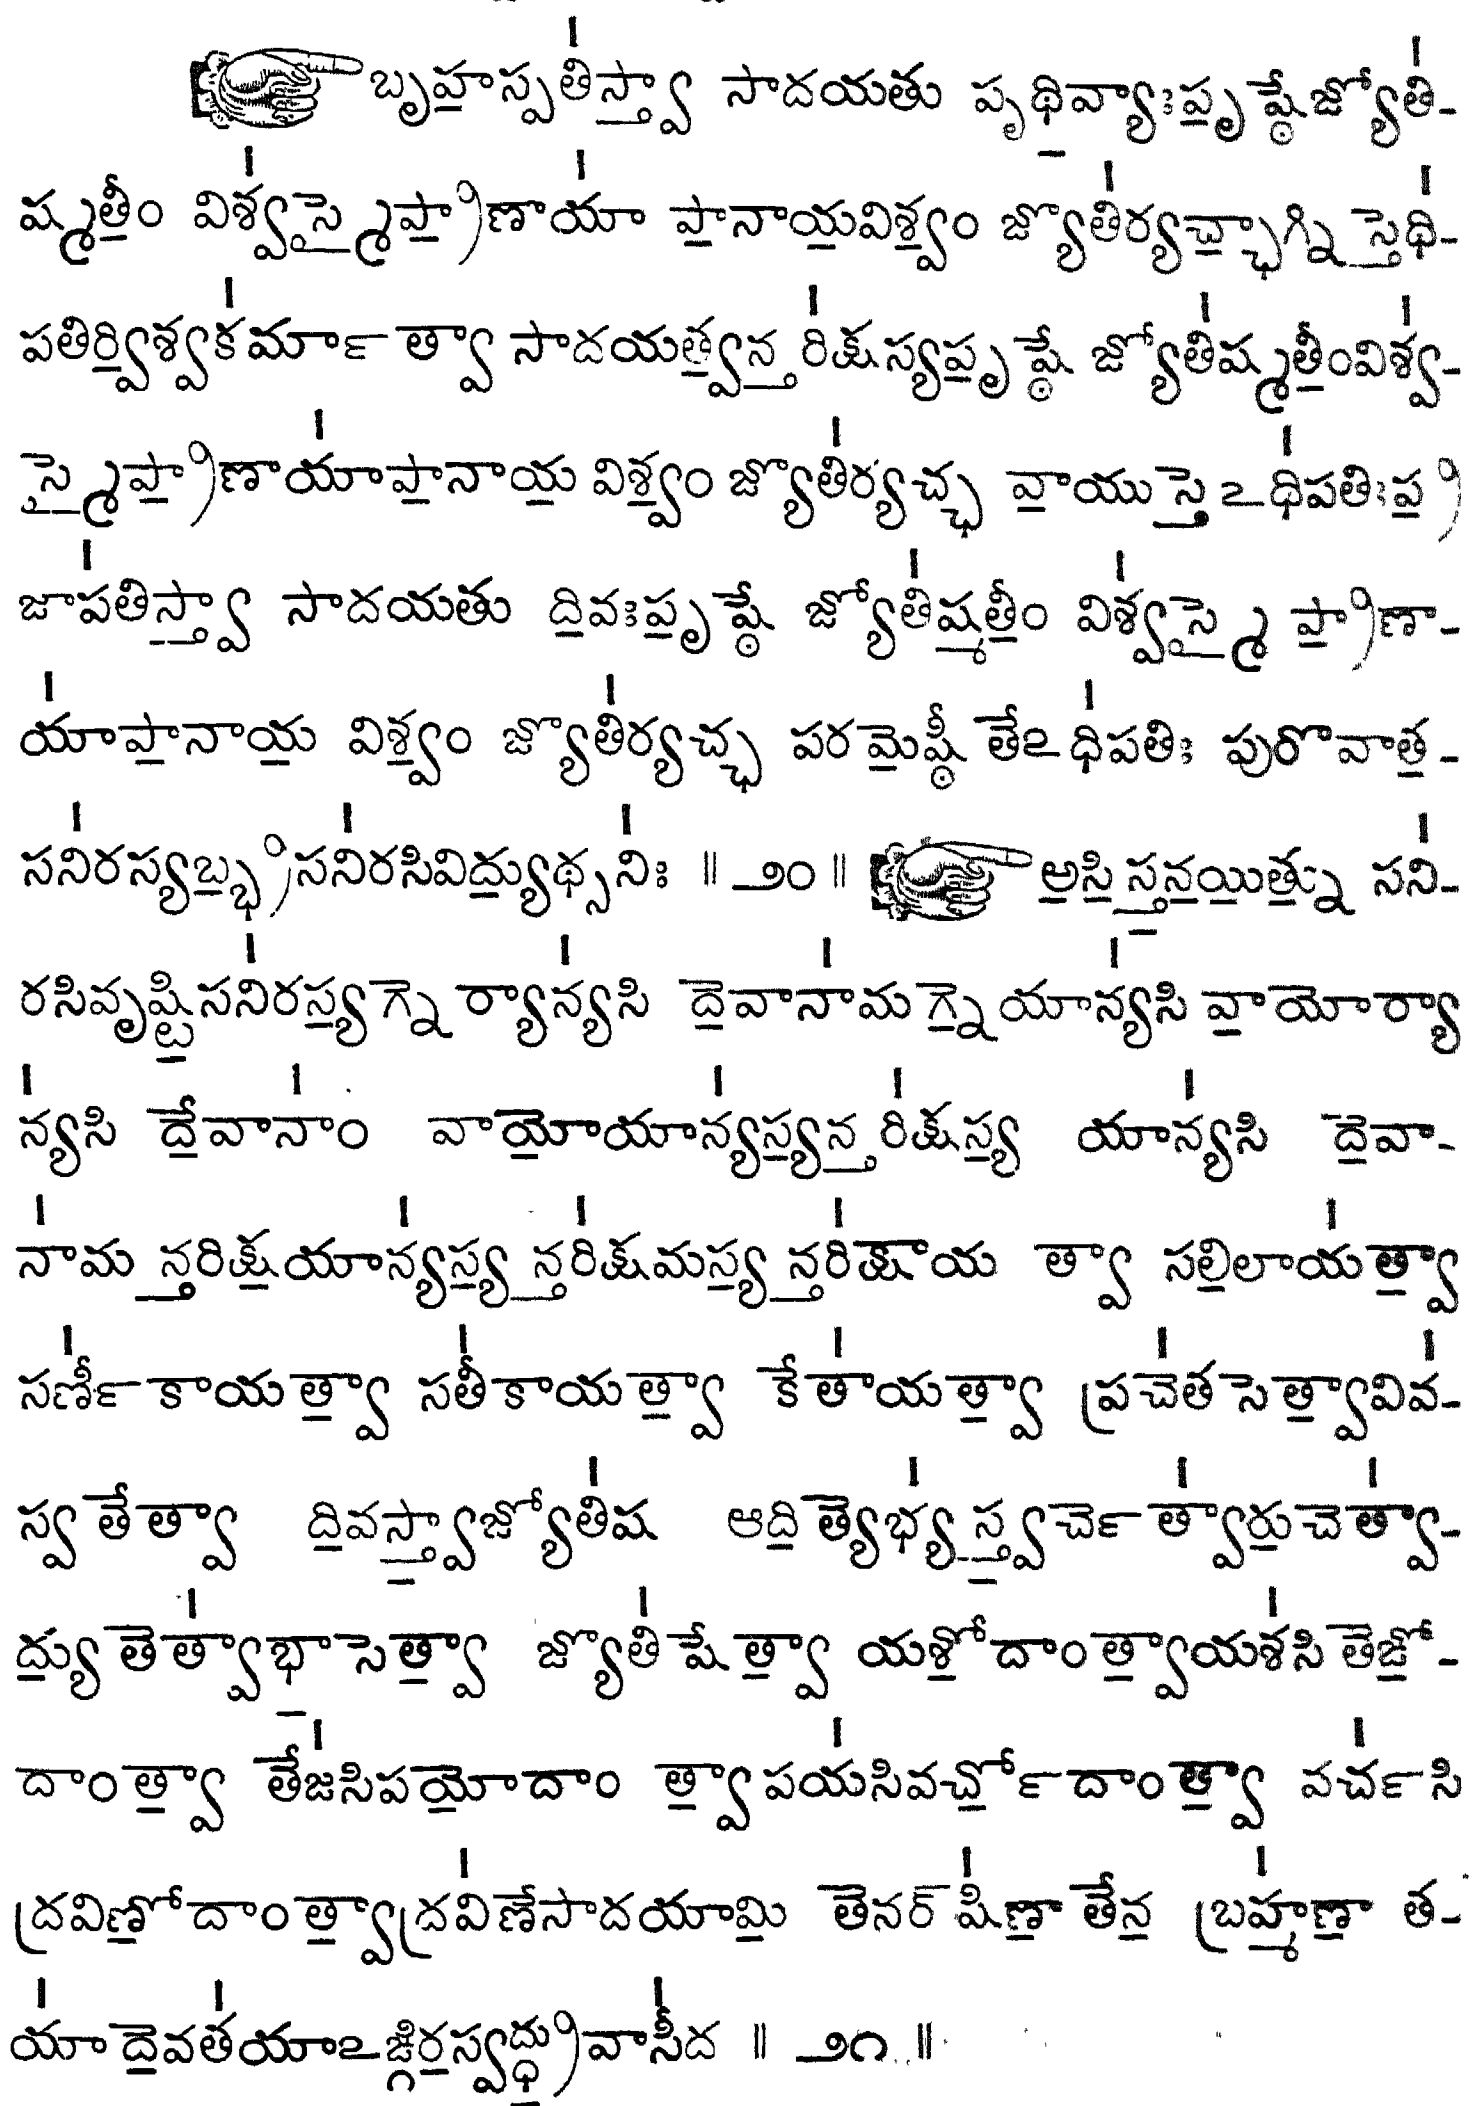 బృహ॒స్పతి॑స్త్వా సాదయతు పృథి॒వ్యాఃపృ॒ష్ఠేజ్యోతి॑-
ష్మతీం॒ విశ్వ॑స్మైప్రా॒ణాయా॑ పా॒నాయ॒విశ్వం॒ జ్యోతి॑ర్యచ్ఛా॒గ్ని స్తెథి॑-
పతిర్వి॒శ్వక॑ర్మా త్వా సాదయత్వ॒న్త రి॑క్షస్యపృ॒ష్ఠే జ్యోతి॑ష్మతీం॒విశ్వ॑-
స్మైప్రా॒ణాయా॑పా॒నాయ॒ విశ్వం॒ జ్యోతి॑ర్యచ్ఛ వా॒యుస్తె॒ ఽధి॑పతిఃప్ర॒
జాప॑తిస్త్వా సాదయతు ది॒వఃపృ॒ష్ఠే జ్యోతి॑ష్మతీం॒ విశ్వ॑స్మై ప్రా॒ణా-
యా॑పా॒నాయ॒ విశ్వం॒ జ్యోతి॑ర్యచ్ఛ పరమె॒ష్ఠీ తేఽధి॑పతిః పురొవాత॒-
సని॑రస్యబ్భ్ర॒సని॑రసివిద్యు॒థ్సని॑ః ॥ ౨౦ ॥ అ॒సి॒ స్త॒న॒యి॒త్ను సని॑-
రసివృష్టి॒సని॑రస్య॒గ్నె ర్యాన్య॑సి దె॒వానా॑మ గ్నె॒యాన్య॑సి వా॒యోర్యా
న్య॑సి దే॒వానాం॑ వాయో॒యాన్య॑స్య॒న్త రి॑క్షస్య॒ యాన్య॑సి దె॒వా-
నా॑మ న్త॒రిక్ష॒యాన్య॑స్య॒ న్తరి॑క్షమస్య॒ న్తరి॑క్షాయ త్వా సలి॒లాయ॑త్వా॒
సర్ణీ॑కాయ త్వా॒ సతీ॑కాయ త్వా॒ కేతా॑యత్వా॒ ప్రచె॑త సెత్వా॒వివ॑-
స్వ తేత్వా ది॒వస్త్వా॒జ్యోతి॑ష ఆది॒ త్యెభ్య॑ స్త్వ॒ ర్చె త్వా॑రు॒చెత్వా॑-
ద్యు॒ తెత్వా॑భా॒సెత్వా॒ జ్యోతి॑ షేత్వా॒ యశో॒దాంత్వా॒యశ॑సి తెజో॒-
దాంత్వా॒ తేజ॑సిపయో॒దాం త్వా॒పయ॑సివర్చో॒దాంత్వా॒ వర్చ॑సి
ద్రవిణో॒దాంత్వా॒ద్రవి॑ణేసాదయామి॒ తెనర్ షి॑ణా॒ తేన॒ బ్రహ్మ॑ణా॒ త-
యా॑ దె॒వత॑యాఽఙ్గిర॒స్వద్ధ్రు॒వాసీ॑ద ॥ ౨౧ ॥